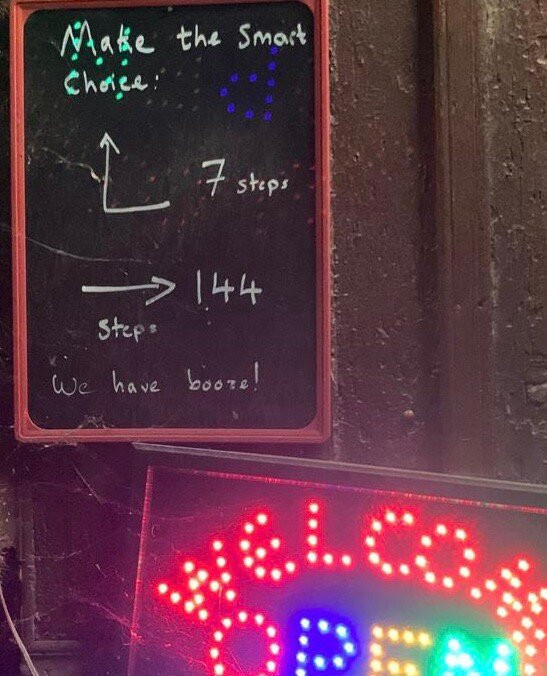 Make the Smart
Choice:
7 steps
144
steps
We have booze!
WELCOM
OPEN